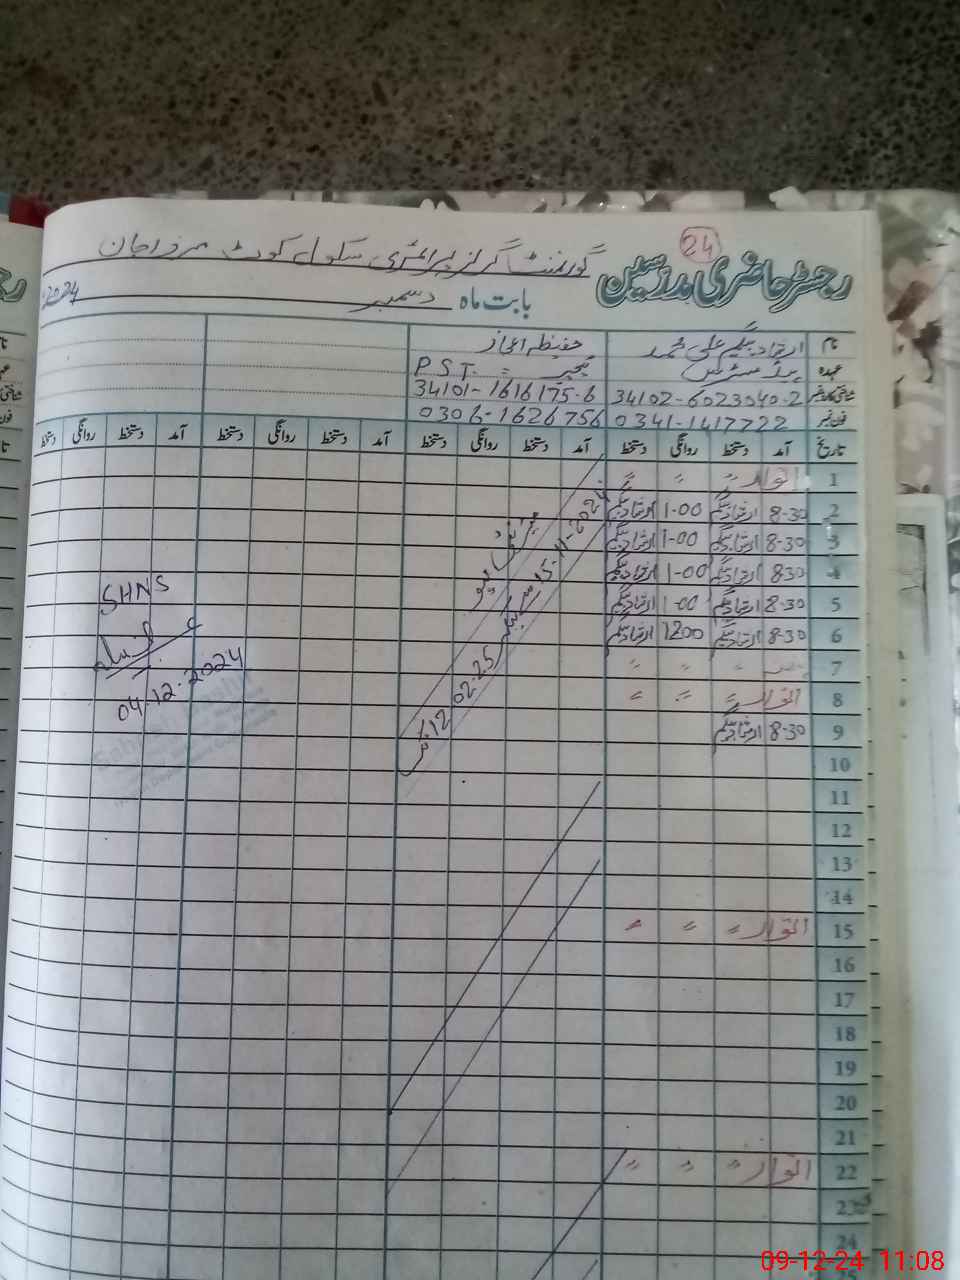 24
رجسٹر حاضری مدرسین گورنمنٹ گرلز پرائمری سکول کوٹ مرزا جان
بابت ماہ دسمبر 2024
نام ارشاد بیگم علی محمد حفیظہ اعجاز
عہدہ ہیڈ مسٹریس ٹیچر P.S.T
شناختی کارڈ نمبر 34102-6023040-2 34101-1616175-6
فون نمبر 0341-1417722 0306-1626756
تاریخ آمد دستخط روانگی دستخط آمد دستخط روانگی دستخط آمد دستخط روانگی دستخط آمد دستخط روانگی دستخط
1 اتوار = = =
2 8-30 ارشاد بیگم 1-00 ارشاد بیگم
3 8-30 ارشاد بیگم 1-00 ارشاد بیگم
4 830 ارشاد بیگم 1-00 ارشاد بیگم
5 8-30 ارشاد بیگم 1-00 ارشاد بیگم
6 8-30 ارشاد بیگم 1200 ارشاد بیگم
7 = = =
8 اتوار = = =
9 8-30 ارشاد بیگم
10
11
12
13
14
15 اتوار = = =
16
17
18
19
20
21
22 اتوار = = =
23
24
میٹرنٹی لیو
15-11-2024 سے لیکر
12-02-25 تک
SHNS
04.12.2024
09-12-24 11:08